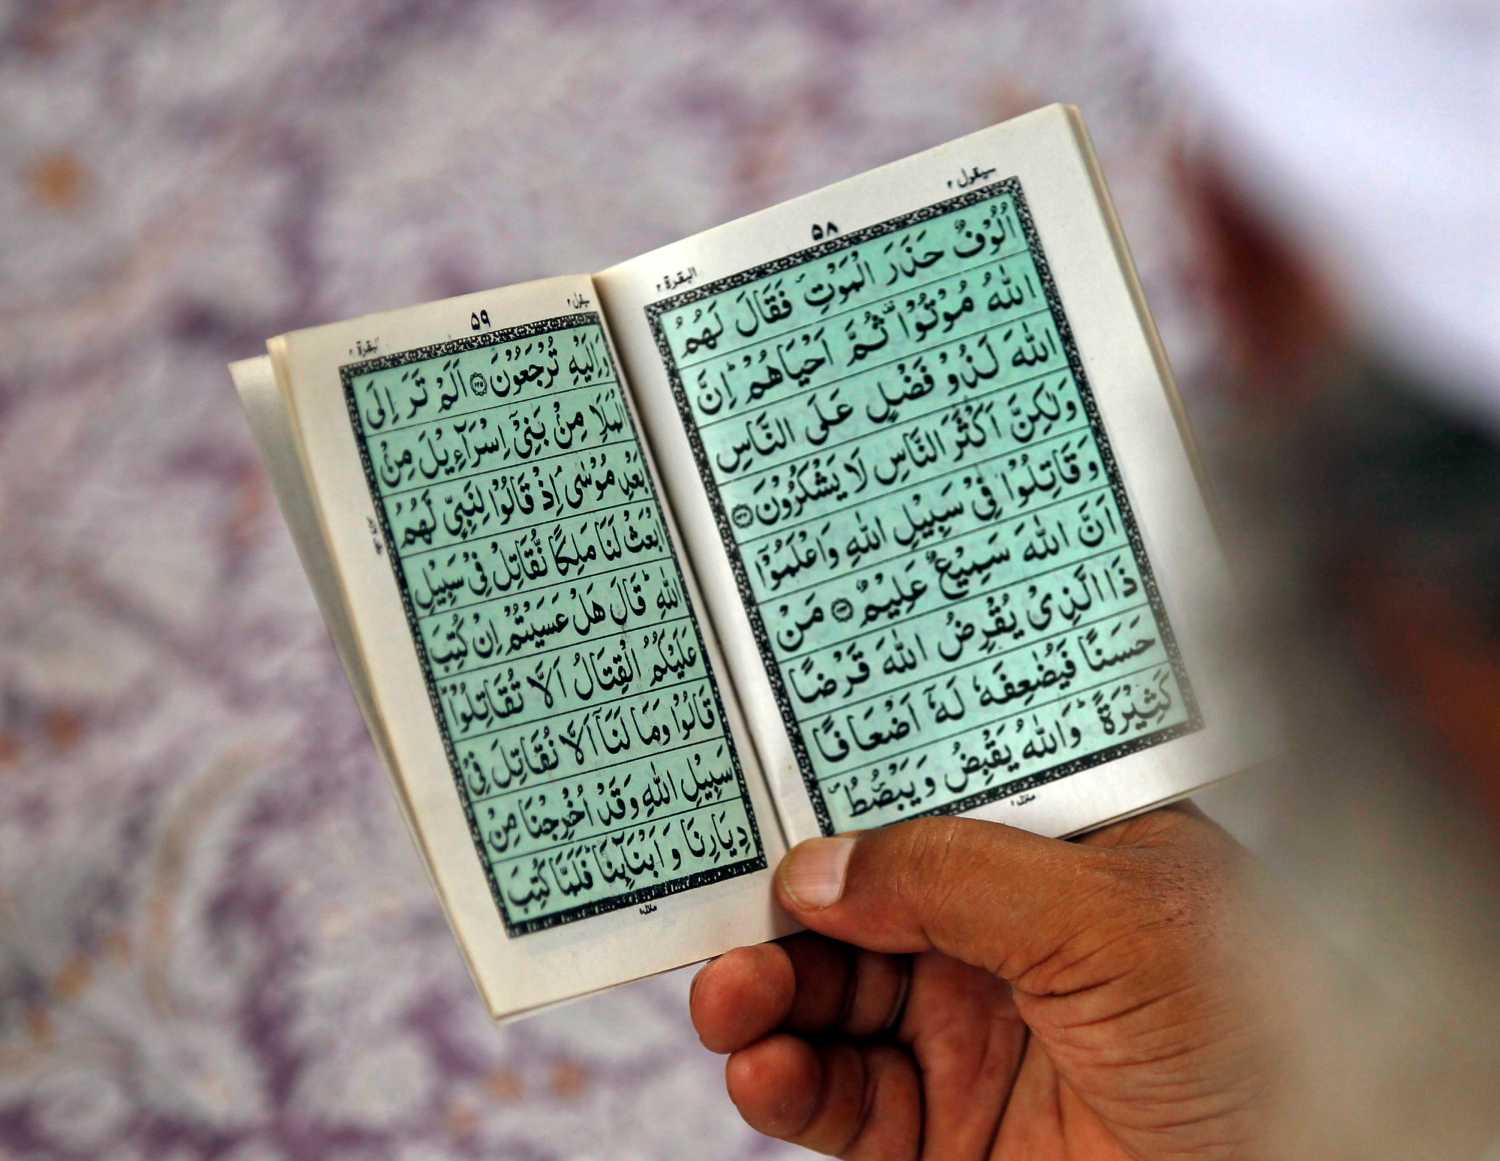 سیقول ۲
۵۸
البقرة ۲
اُلُوْفٌ حَذَرَ الْمَوْتِ فَقَالَ لَهُمُ
اللّٰهُ مُوْتُوْا ثُمَّ اَحْيَاهُمْ اِنَّ
اللّٰهَ لَذُوْ فَضْلٍ عَلَى النَّاسِ
وَلٰكِنَّ اَكْثَرَ النَّاسِ لَا يَشْكُرُوْنَ ۝۲۴۳
وَقَاتِلُوْا فِيْ سَبِيْلِ اللّٰهِ وَاعْلَمُوْٓا
اَنَّ اللّٰهَ سَمِيْعٌ عَلِيْمٌ ۝۲۴۴ مَنْ
ذَا الَّذِيْ يُقْرِضُ اللّٰهَ قَرْضًا
حَسَنًا فَيُضٰعِفَهٗ لَهٗٓ اَضْعَافًا
كَثِيْرَةً ؕ وَاللّٰهُ يَقْبِضُ وَيَبْصُۜطُ ۪
منزل ۱
سیقول ۲
۵۹
البقرة ۲
وَاِلَيْهِ تُرْجَعُوْنَ ۝۲۴۵ اَلَمْ تَرَ اِلَى
الْمَلَاِ مِنْۢ بَنِيْٓ اِسْرَآءِيْلَ مِنْۢ
بَعْدِ مُوْسٰى اِذْ قَالُوْا لِنَبِيٍّ لَّهُمُ
ابْعَثْ لَنَا مَلِكًا نُّقَاتِلْ فِيْ سَبِيْلِ
اللّٰهِ ؕ قَالَ هَلْ عَسَيْتُمْ اِنْ كُتِبَ
عَلَيْكُمُ الْقِتَالُ اَلَّا تُقَاتِلُوْا ؕ
قَالُوْا وَمَا لَنَآ اَلَّا نُقَاتِلَ فِيْ
سَبِيْلِ اللّٰهِ وَقَدْ اُخْرِجْنَا مِنْ
دِيَارِنَا وَاَبْنَآئِنَا ؕ فَلَمَّا كُتِبَ
منزل ۱